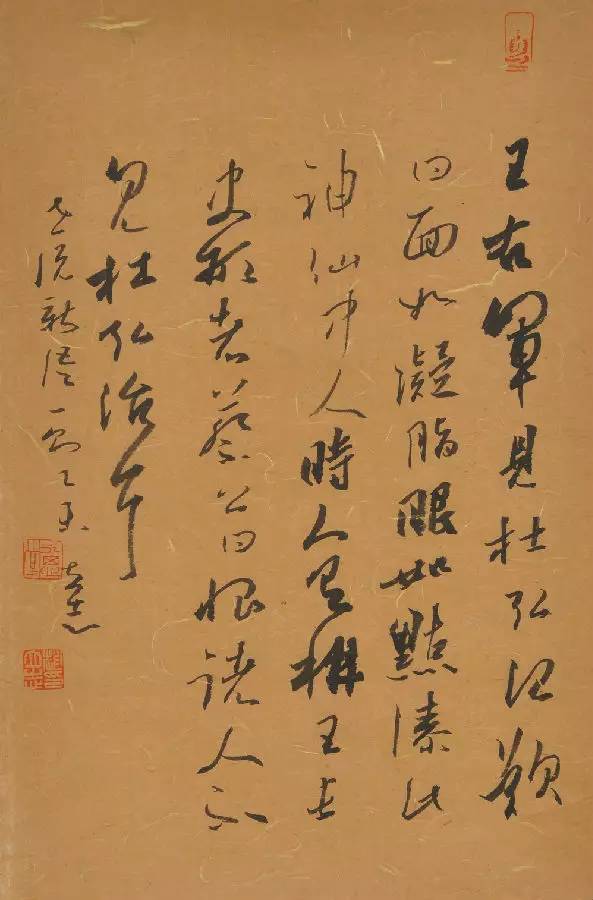 王右軍見杜弘治歎
曰面如凝脂眼如點漆此
神仙中人時人有稱王長
史形者蔡公曰恨諸人不
見杜弘治耳
世說新語一則乙未